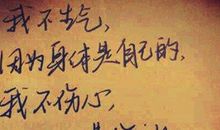 我不生气,
因为身体是自己的,
我不伤心,